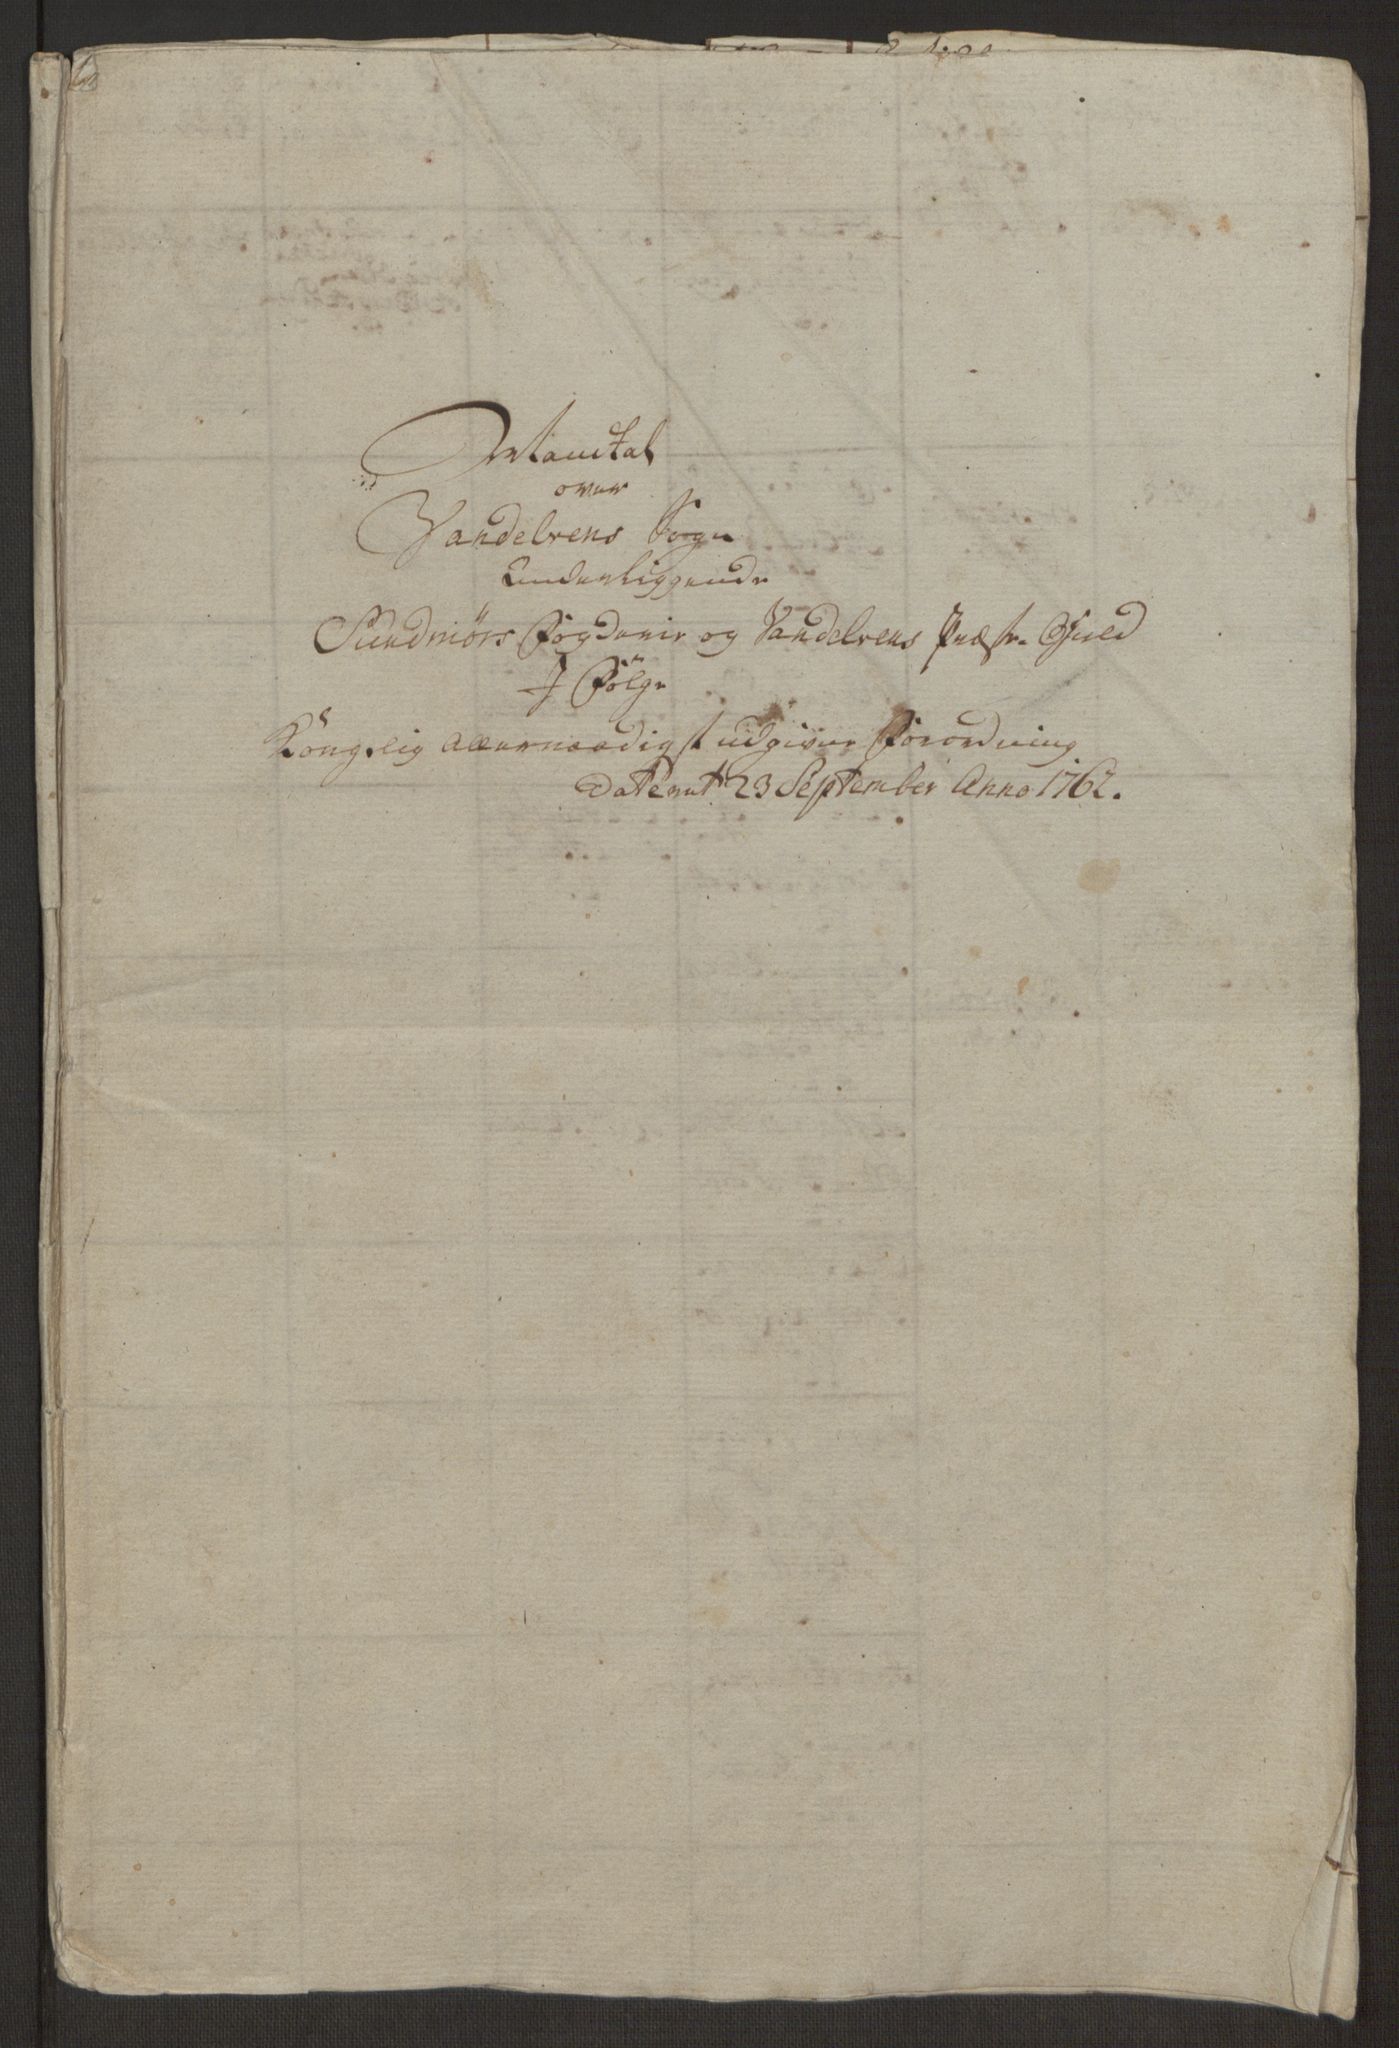 Mandtal
over
Vandelvens Sogn
Underliggende
Sundmörs Fogderie og Vandelvens Præste Gield
I Fölge
Kongelig allernaadigst udgivne Forordning
Dateret 23 September Anno 1762.